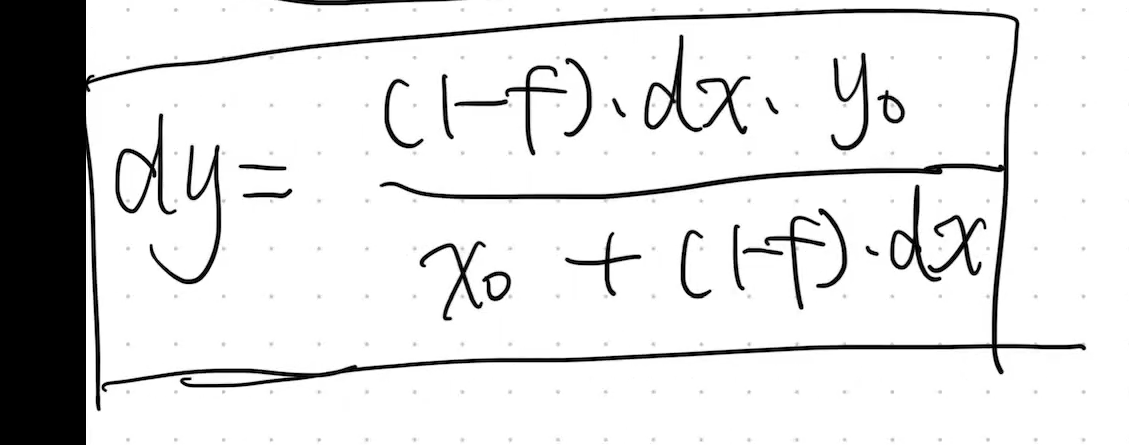 dy = \frac{(1-f) \cdot dx \cdot y_0}{x_0 + (1-f) \cdot dx}